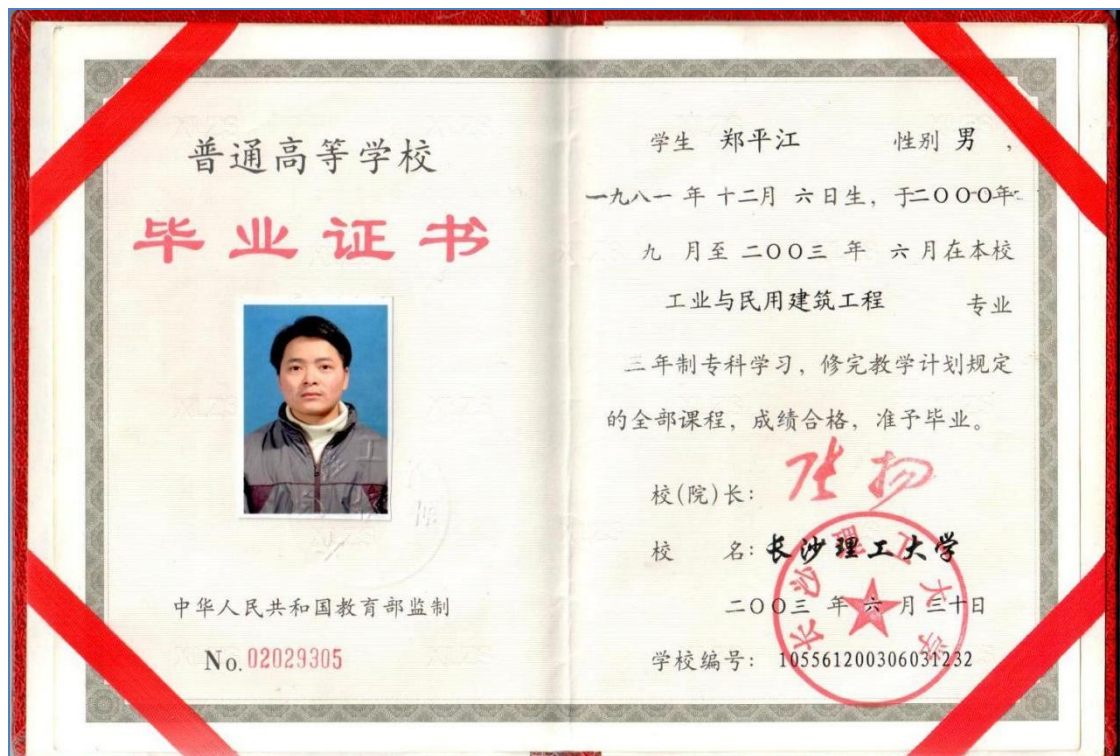 普通高等学校
毕业证书
中华人民共和国教育部监制
No. 02029305
学生 郑平江 性别 男 ，
一九八一 年 十二月 六 日生，于二〇〇〇年
九 月至 二〇〇三 年 六 月在本校
工业与民用建筑工程 专业
三 年制专科学习，修完教学计划规定
的全部课程，成绩合格，准予毕业。
校(院)长：
校 名：长沙理工大学
二〇〇三 年 六 月 三十日
学校编号： 105561200306031232
长沙理工大学